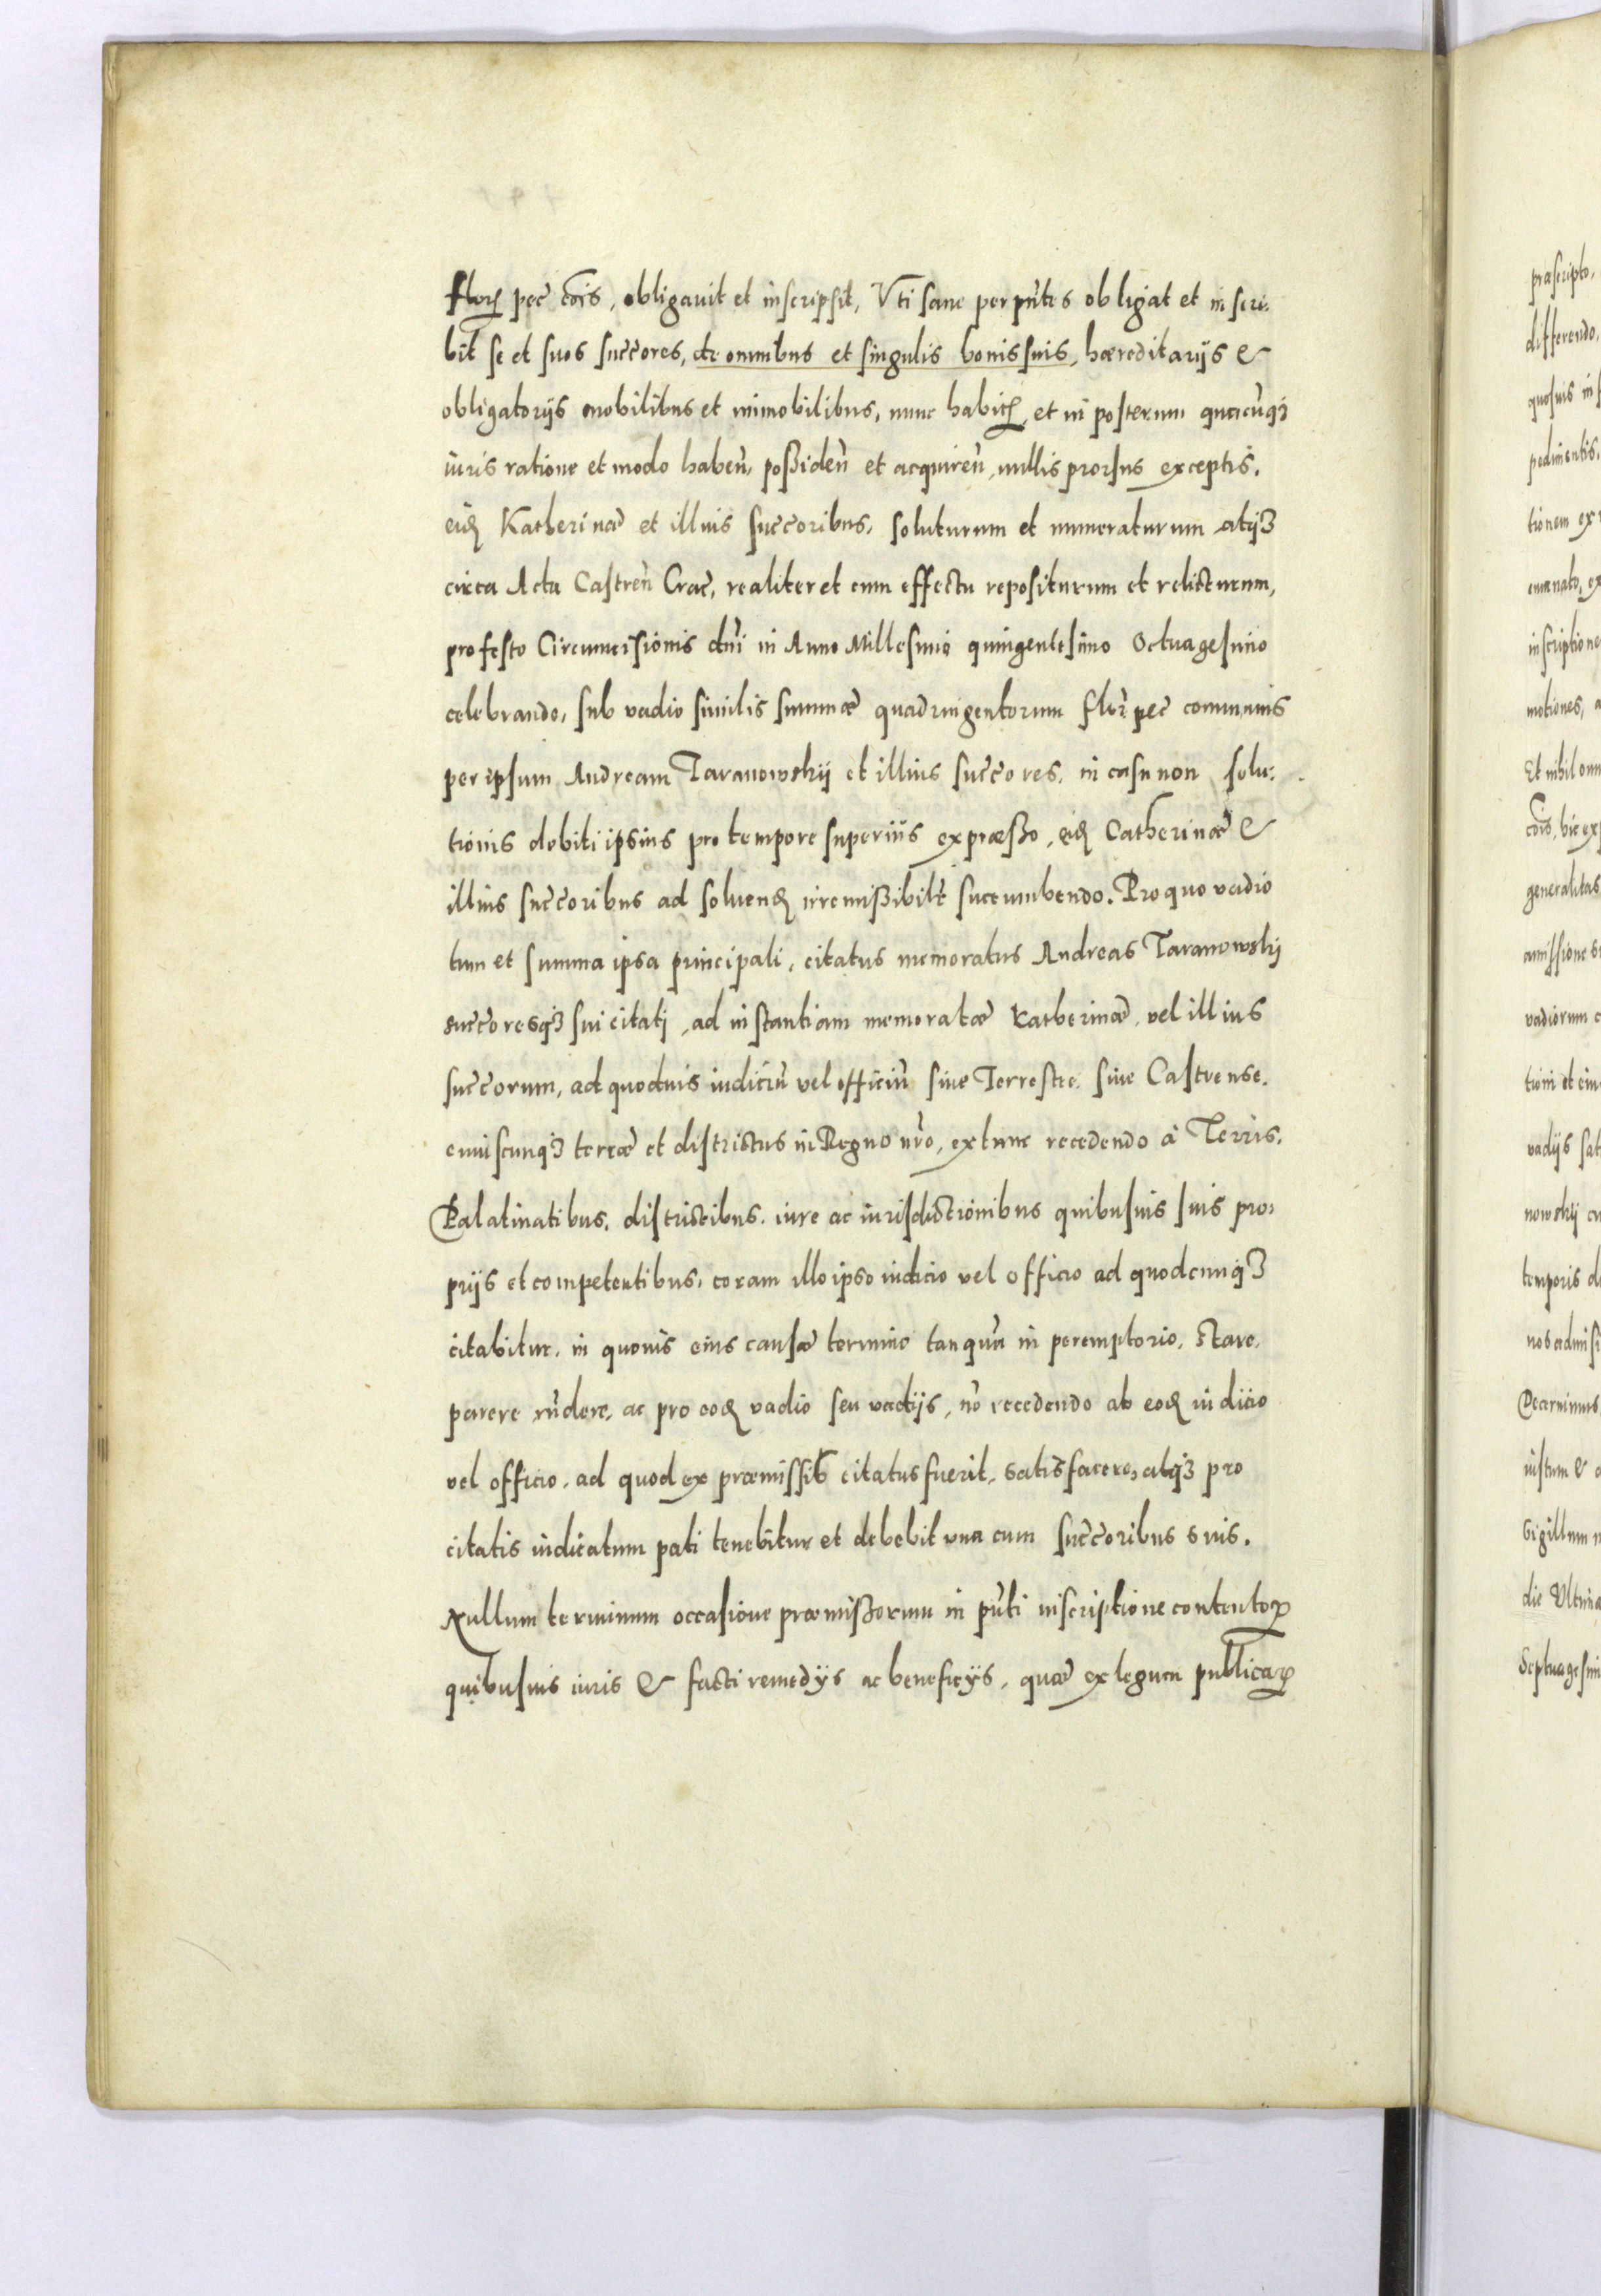 floꝝ pec̄ cōis, obligauit et inscripsit, Vti sane per pn̄tes obligat et inscri-
bit se et suos succ̄ores, de omnibus et singulis bonis suis, hæreditarijs &
obligatorijs mobilibus et immobilibus, nunc habitꝭ, et in posterum quacūqꝫ
iuris ratione et modo haben̄, poßiden̄ et acquiren̄, nullis prorsus exceptis.
eidꝫ Katherinæ et illius succ̄oribus, soluturum et numeraturum atqꝫ
circa Acta Castren̄ Crac̄, realiter et cum effectu repositurum et relicturum,
pro festo Circumcisionis dn̄i in Anno Millesimo quingentesimo Octuagesimo
celebrando, sub vadio similis summæ quadringentorum flor̄ pec̄ communis
per ipsum Andream Taranowskij et illius succ̄ores, in casu non solu-
tionis debiti ipsius pro tempore superiùs expræßo, eidꝫ Catherinæ &
illius succ̄oribus ad soluendꝫ irremißibilr̄ succumbendo. Pro quo vadio
tum et summa ipsa principali, citatus memoratus Andreas Taranowskij
succ̄oresqꝫ sui citati, ad instantiam memoratæ Katherinæ, vel illius
succ̄orum, ad quoduis iudiciū vel officiū siue Terrestre, siue Castrense,
cuiuscunqꝫ terræ et districtus in Regno nr̄o, extunc recedendo à Terris,
Palatinatibus, districtibus, iure ac iurisdictionibus quibusuis suis pro-
prijs et competentibus, coram illo ipso iudicio vel officio ad quodcunqꝫ
citabitur, in quouis eius causæ termino tanquā in peremptorio, stare,
parere rn̄dere, ac pro eodꝫ vadio seu vadijs, nō recedendo ab eodꝫ iudicio
vel officio, ad quod ex præmissib citatus fuerit, satisfacere, atqꝫ pro
citatis iudicatum pati tenebitur et debebit vna cum succ̄oribus suis.
Nullum terminum occasione præmißorum in pn̄ti inscriptione contentoꝝ
quibusuis iuris & facti remedijs ac beneficijs, quæ ex legum publicaꝝ
præscripto,
differendo,
quosuis in
pedimentis,
tionem ex
emanato, ex
inscriptione
motiones, a
Et nihilom
cōis, hic exp
generalitas
amissione
vadiorum
tioni et eiu
vadijs sat
nowskij cu
temporis d
nos admisi
Decernimus
iustum & a
Sigillum
die Vltima
Septuagesim